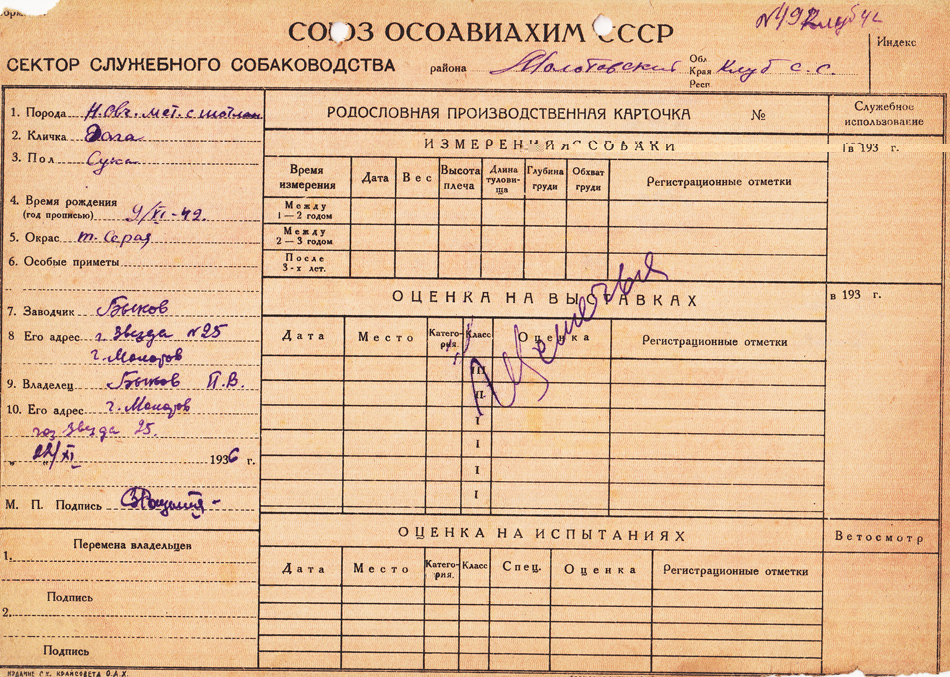 СОЮЗ ОСОАВИАХИМ СССР
№ 492 Клуб
Индекс
СЕКТОР СЛУЖЕБНОГО СОБАКОВОДСТВА
района Молотовский Обл Края Респ Клуб С. С.
1. Порода Н. Овч. мет. с шотлан
2. Кличка Дога
3. Пол Сука
4. Время рождения
(год прописью) 9/XI-42.
5. Окрас т. Серая
6. Особые приметы
7. Заводчик Быков
8 Его адрес г. Звезда №25
г. Молотов
9. Владелец Быков П. В.
10. Его адрес г. Молотов
газ Звезда 25.
22/XI 1936 г.
М. П. Подпись
Перемена владельцев
1.
Подпись
2.
Подпись
РОДОСЛОВНАЯ ПРОИЗВОДСТВЕННАЯ КАРТОЧКА №
ИЗМЕРЕНИЯ СОБАКИ
Время измерения Дата Вес Высота плеча Длина туловища Глубина груди Обхват груди Регистрационные отметки
Между
1—2 годом
Между
2—3 годом
После
3-х лет.
ОЦЕНКА НА ВЫСТАВКАХ
Дата Место Категория. Класс Оценка Регистрационные отметки
III
II
I
I
I
I
ОЦЕНКА НА ИСПЫТАНИЯХ
Дата Место Категория. Класс Спец. Оценка Регистрационные отметки
Служебное
использование
в 193 г.
в 193 г.
Ветосмотр
ИЗДАНИЕ СК. КРАЙСОВЕТА О.А.Х.